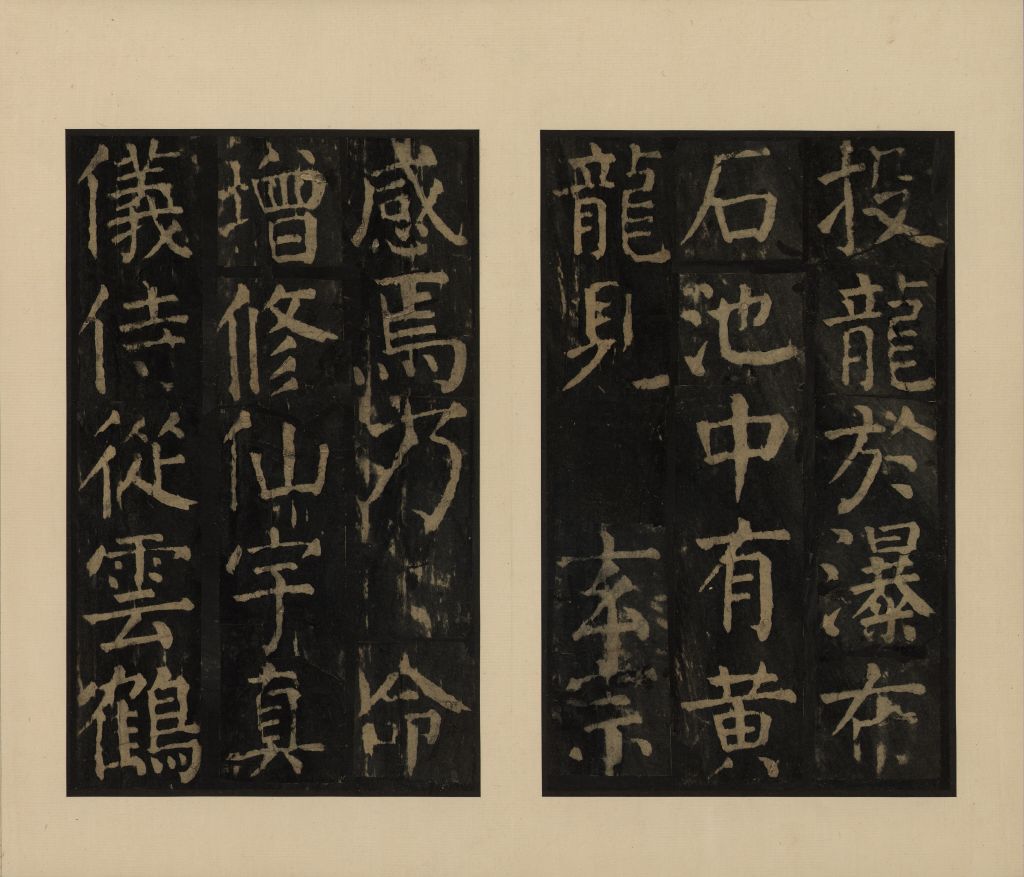 投龍於瀑布
石池中有黃
龍見玄宗
感焉乃命
增修仙宇真
儀侍從雲鶴